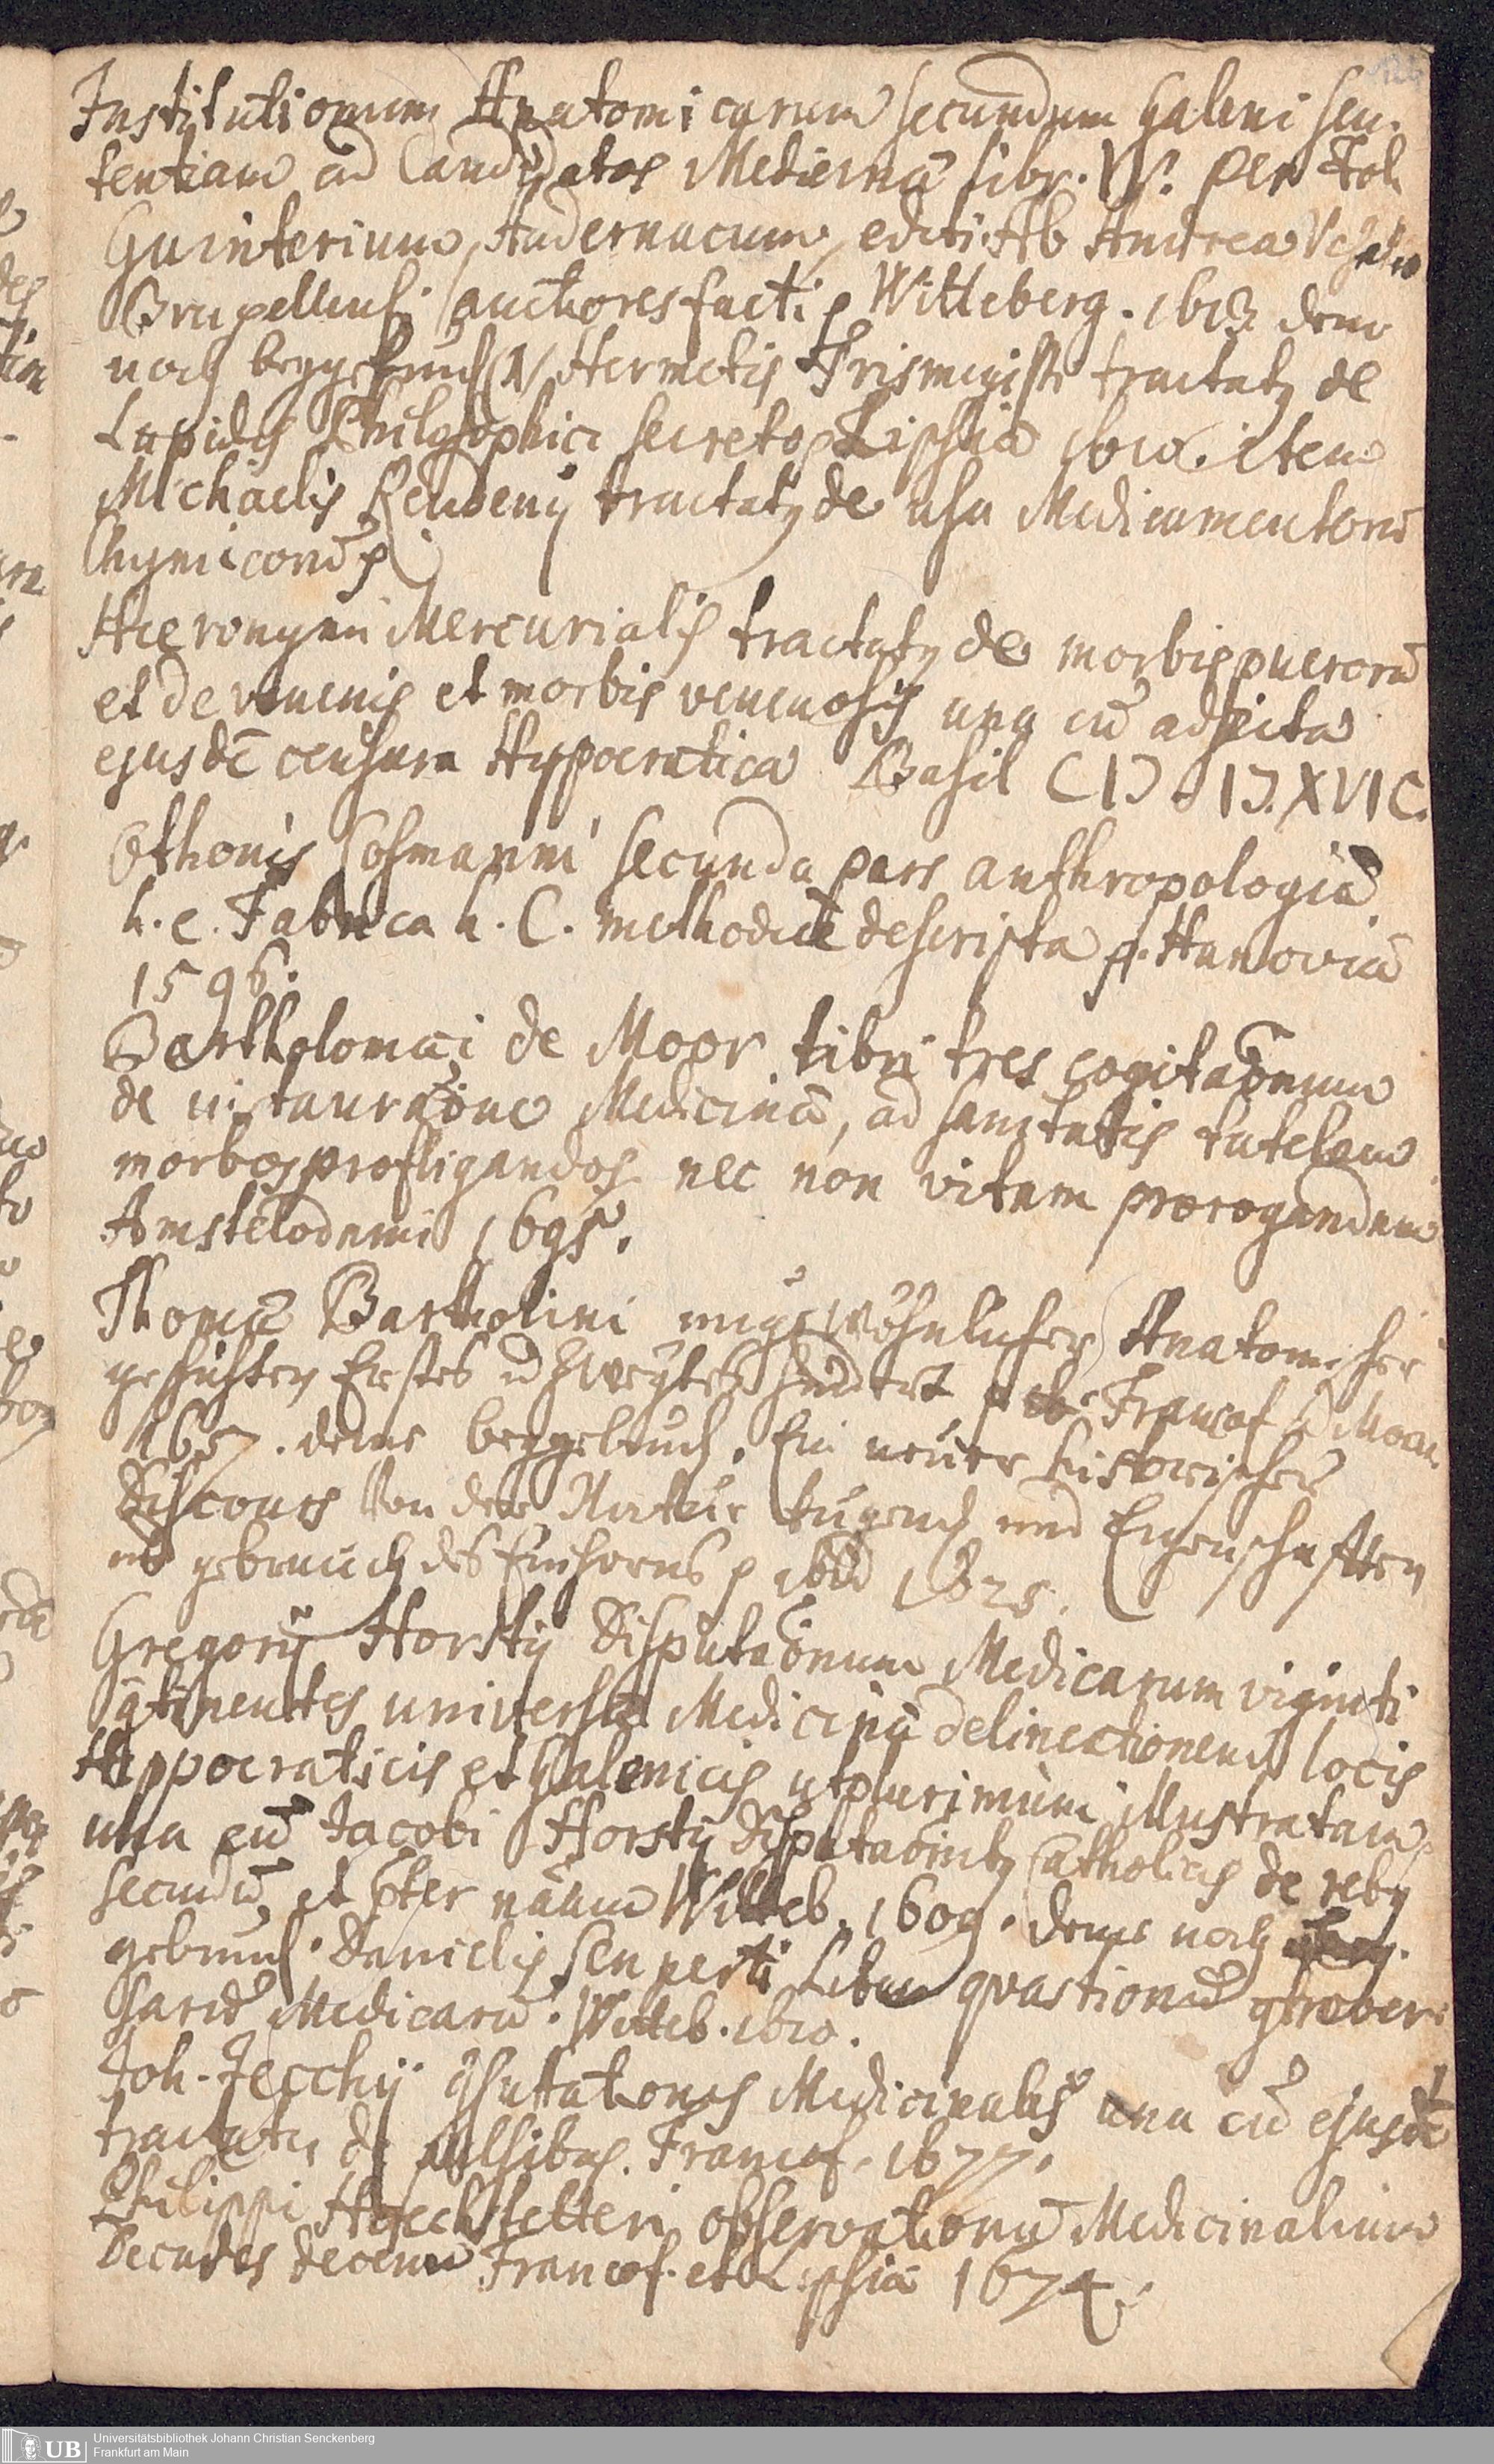 Institutionum Anatomicarum secundum Galeni sen-
tentiam ad Candidatos Medicinæ libr. IV. per Joh
Guinterium Andernacum editi Ab Andrea Vesalio
Bruxellensi auctores facti p Witteberg. 1613. deme
noch beygebund Hermetis Trismegisti tractatq de
Lapidis Philosophici secreto p Lipsiæ 1610. item
Michaelis Reudenij tractatq de usu Medicamentorū
Chymicorū p
Hieronymi Mercurialis tractatq de morbis puerorū
et de venenis et morbis venenosis una cū adjecta
ejusdē censura Hyppocratica Basil CIↃ. IↃ. XVIC.
Othonis Casmanni secunda pars anthropologiæ
h. e. Fabrica h. C. methodice descripta p. Hanoviæ
1596.
Bartholomæi de Moor libri tres cogitaōnum
de instauraōne Medicinæ, ad sanitatis tutelam
morbos profligandos nec non vitam prorogandam
Amstelodami 1695.
Thomæ Bartholini ungewöhnlicher Anatomischer
geschichten Erstes ud Zweytes hundert p Francof ad Moen.
1657. deme beygebund. Ein neuer historischer
Discours Von der Natur tugend und Eigenschafften
und gebrauch des Einhorns p ibid 1625.
Gregorij Horstij Disputaōnum Medicarum viginti
qtinentes universæ Medicinæ delineationem locis
Hippocraticis et Galenicis utplurimum illustratam
una cū Jacobi Horstij Disputaōnibq Catholicis de rebq
secundū et pter nāam Witteb. 1609. deme noch bey-
gebund. Danielis Sennerti Liber quæstionū qtrover-
sarū Medicarū. Witteb. 1610.
Joh. Jecchij qsultationes Medicinales una cū ejusdē
tractatu de pulsibus. Francof. 1677.
Philippi Hoechstetteri observationū Medicinalium
Decades decem Francof. et Lipsiæ 1674.
Universitätsbibliothek Johann Christian Senckenberg
Frankfurt am Main
UB